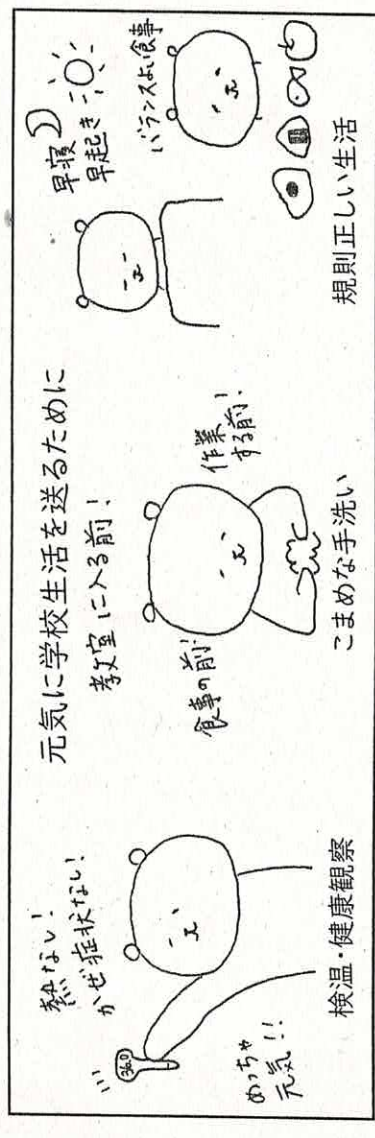 元気に学校生活を送るために
熱ない!
かぜ症状ない!
36.0
めっちゃ
元気!!
検温・健康観察
教室に入る前!
食事の前!
作業
する前!
こまめな手洗い
早寝
早起き
バランスよい食事
規則正しい生活